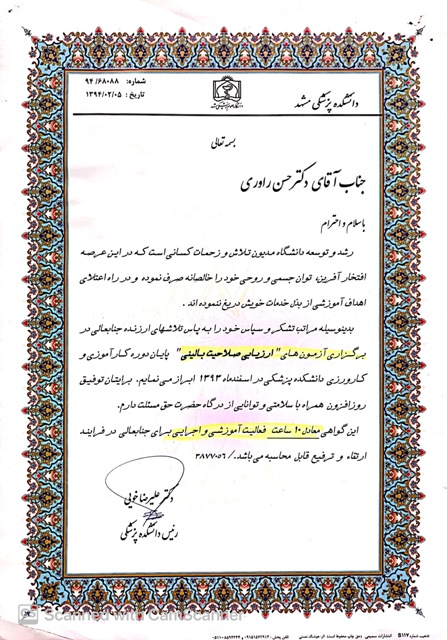 دانشکده پزشکی مشهد
شماره: ۹۴/۶۸۰۸۸
تاریخ: ۱۳۹۴/۰۲/۰۵
بسمه تعالی
جناب آقای دکتر حسن راوری
با سلام و احترام
رشد و توسعه دانشگاه مدیون تلاش و زحمات کسانی است که در این عرصه
افتخار آفرین، توان جسمی و روحی خود را خالصانه صرف نموده و در راه اعتلای
اهداف آموزشی از بذل خدمات خویش دریغ ننموده اند.
بدینوسیله مراتب تشکر و سپاس خود را به پاس تلاشهای ارزنده جنابعالی در
برگزاری آزمون های "ارزیابی صلاحیت بالینی" پایان دوره کارآموزی و
کارورزی دانشکده پزشکی در اسفندماه ۱۳۹۳ ابراز می نمایم. برایتان توفیق
روزافزون همراه با سلامتی و توانایی از درگاه حضرت حق مسئلت دارم.
این گواهی معادل ۱۰ ساعت فعالیت آموزشی و اجرایی برای جنابعالی در فرایند
ارتقاء و ترفیع قابل محاسبه می باشد./۳۸۷۷۰۵۶
دکتر علیرضا خویی
رئیس دانشکده پزشکی
Scanned with CamScanner